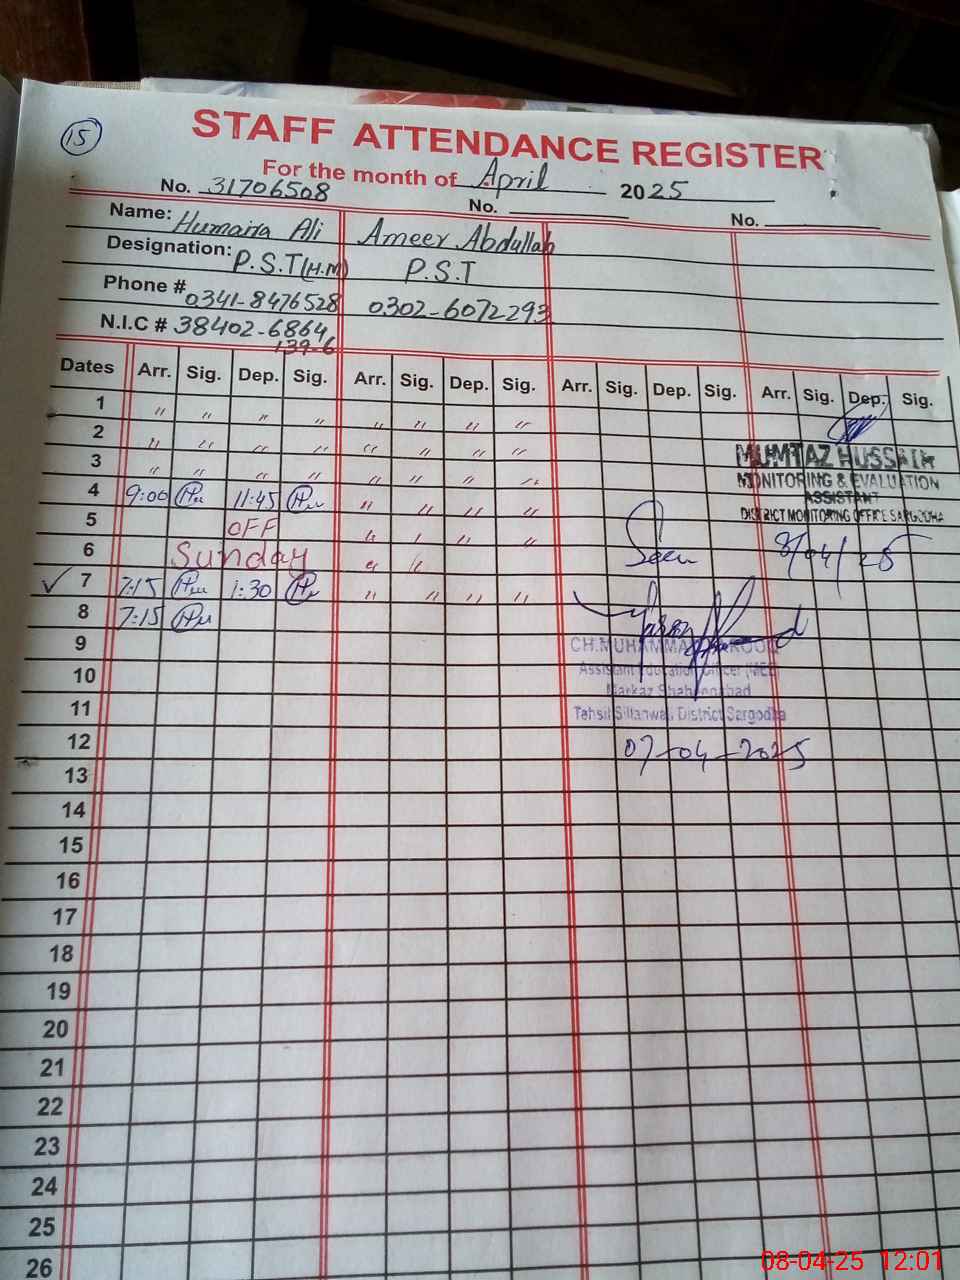 15
STAFF ATTENDANCE REGISTER
For the month of April 2025
No. 31706508 No. No.
Name: Humaira Ali Ameer Abdullah
Designation: P.S.T (H.M) P.S.T
Phone # 0341-8476528 0302-6072293
N.I.C # 38402-6864
139-6
Dates Arr. Sig. Dep. Sig. Arr. Sig. Dep. Sig. Arr. Sig. Dep. Sig. Arr. Sig. Dep. Sig.
1 " " " " " " " "
2 " " " " " " " "
MUMTAZ HUSSAIN
3 " " " " " " " "
MONITORING & EVALUATION
ASSISTANT
4 9:00 11:45 " " " "
DISTRICT MONITORING OFFICE SARGODHA
5 OFF " " " "
Seen 8/04/25
6 Sunday " "
✓ 7 7:15 1:30 " " " "
8 7:15
CH.MUHAMMAD FAROOQ
9
Assistant Education Officer (MEE)
10
Markaz Shaheenabad
11
Tehsil Sillanwali District Sargodha
12
07-04-2025
13
14
15
16
17
18
19
20
21
22
23
24
25
26
08-04-25 12:01